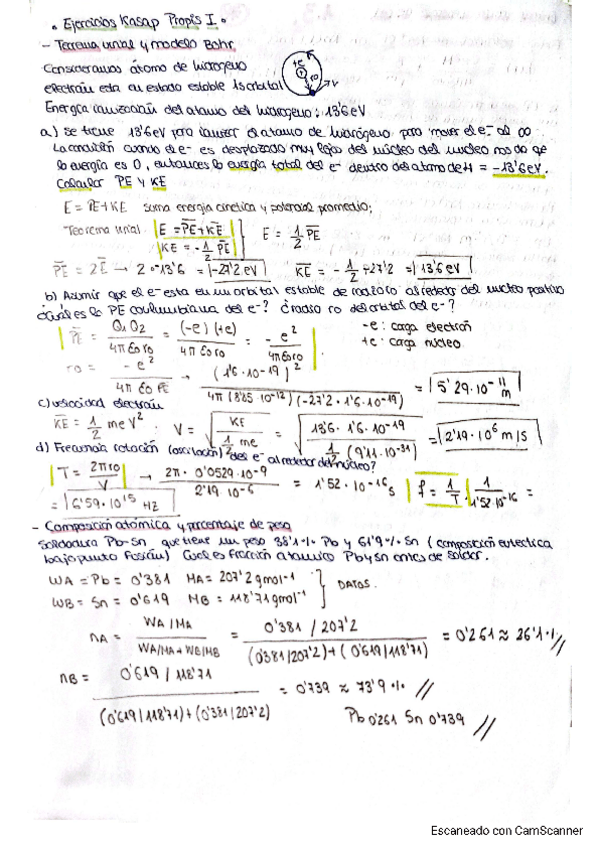 . Ejercicios Kasap Propis I.
- Teorema virial y modelo Bohr.
Consideramos átomo de hidrogeno
electrón esta en estado estable 1s orbital
+e
ro
v
Energía ionización del atomo del hidrogeno: 13'6 eV
a) Se tiene 13'6 eV para ionizar el atomo de hidrógeno para mover el e- al ∞
La condición cuando el e- es desplazado muy lejos del núcleo del nucleo nos da que
la energía es 0, entonces la energía total del e- dentro del atomo de H = -13'6 eV.
Calcular PE y KE
E = PE + KE suma energía cinetica y potencial promedio;
Teorema virial E = PE + KE E = 1/2 PE
KE = - 1/2 PE
PE = 2E → 2·-13'6 = -27'2 eV KE = - 1/2 · -27'2 = 13'6 eV
b) Asumir que el e- esta en un orbital estable de radio ro alrededor del nucleo positivo
¿Cuál es la PE coulumbiana del e-? ¿radio ro del orbital del e-?
PE = Q1 Q2 / 4π εo ro = (-e)(+e) / 4π εo ro = - e² / 4π εo ro . -e: carga electrón
+e: carga núcleo.
ro = - e² / 4π εo PE → (1'6·10-19)² / 4π (8'85·10-12)(-27'2·1'6·10-19) = 5'29·10-11 m
c) velocidad electrón
KE = 1/2 me V². V = √ KE / 1/2 me = √ 13'6·1'6·10-19 / 1/2 (9'11·10-31) = 2'19·10⁶ m/s
d) Frecuencia rotación (oscilación) des e- alrededor del núcleo?
T = 2π ro / V → 2π · 0'0529·10-9 / 2'19·10-6 = 1'52·10-16 s f = 1/T · 1 / 1'52·10-16 =
= 6'59·10¹⁵ Hz
- Composición atómica y porcentaje de peso
Soldadura Pb-Sn que tiene un peso 38'1·1· Pb y 61'9·1· Sn (composición eutectica
bajo punto fusión) Cual es fracción atomica Pb y Sn antes de soldar.
WA = Pb = 0'381 MA = 207'2 gmol-1
WB = Sn = 0'619 MB = 118'71 gmol-1 } DATOS.
nA = WA/MA / WA/MA + WB/MB = 0'381/207'2 / (0'381/207'2)+(0'619/118'71) = 0'261 ≈ 26'1·1· //
nB = 0'619/118'71 / (0'619/118'71)+(0'381/207'2) = 0'739 ≈ 73'9·1· //
Pb 0'261 Sn 0'739 //
Escaneado con CamScanner